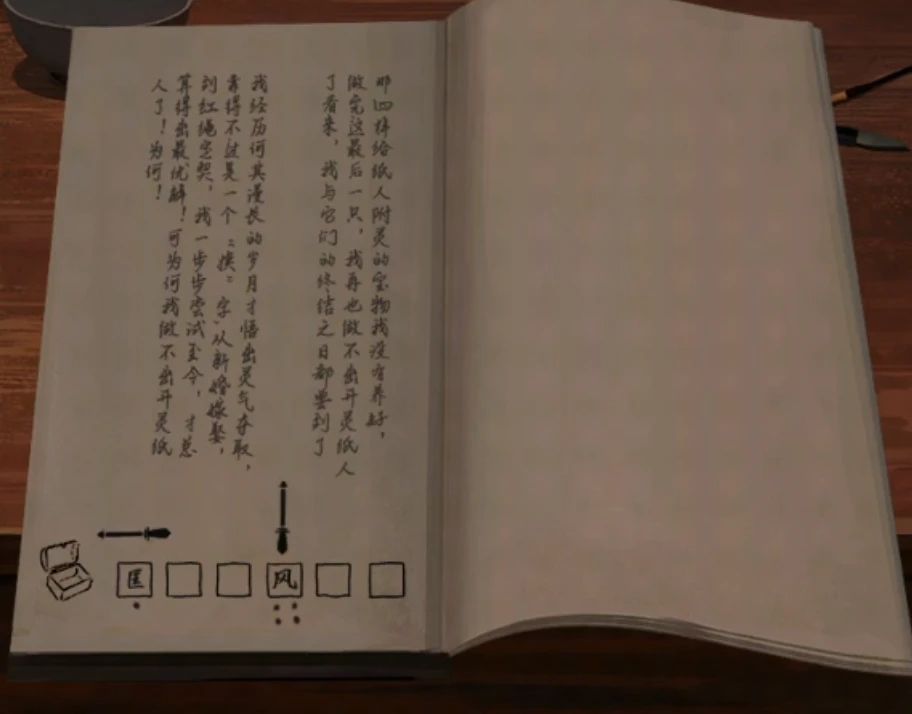 那四样给纸人附灵的宝物我没有养好，
做完这最后一只，我再也做不出开灵纸人
了看来，我与它们的终结之日都要到了
我经历何其漫长的岁月才悟出灵气夺取，
靠得不过是一个“换”字，从新婚嫁娶，
到红绳定契，我一步步尝试至今，才总
算得出最优解！可为何我做不出开灵纸
人了！为何！
匡 风